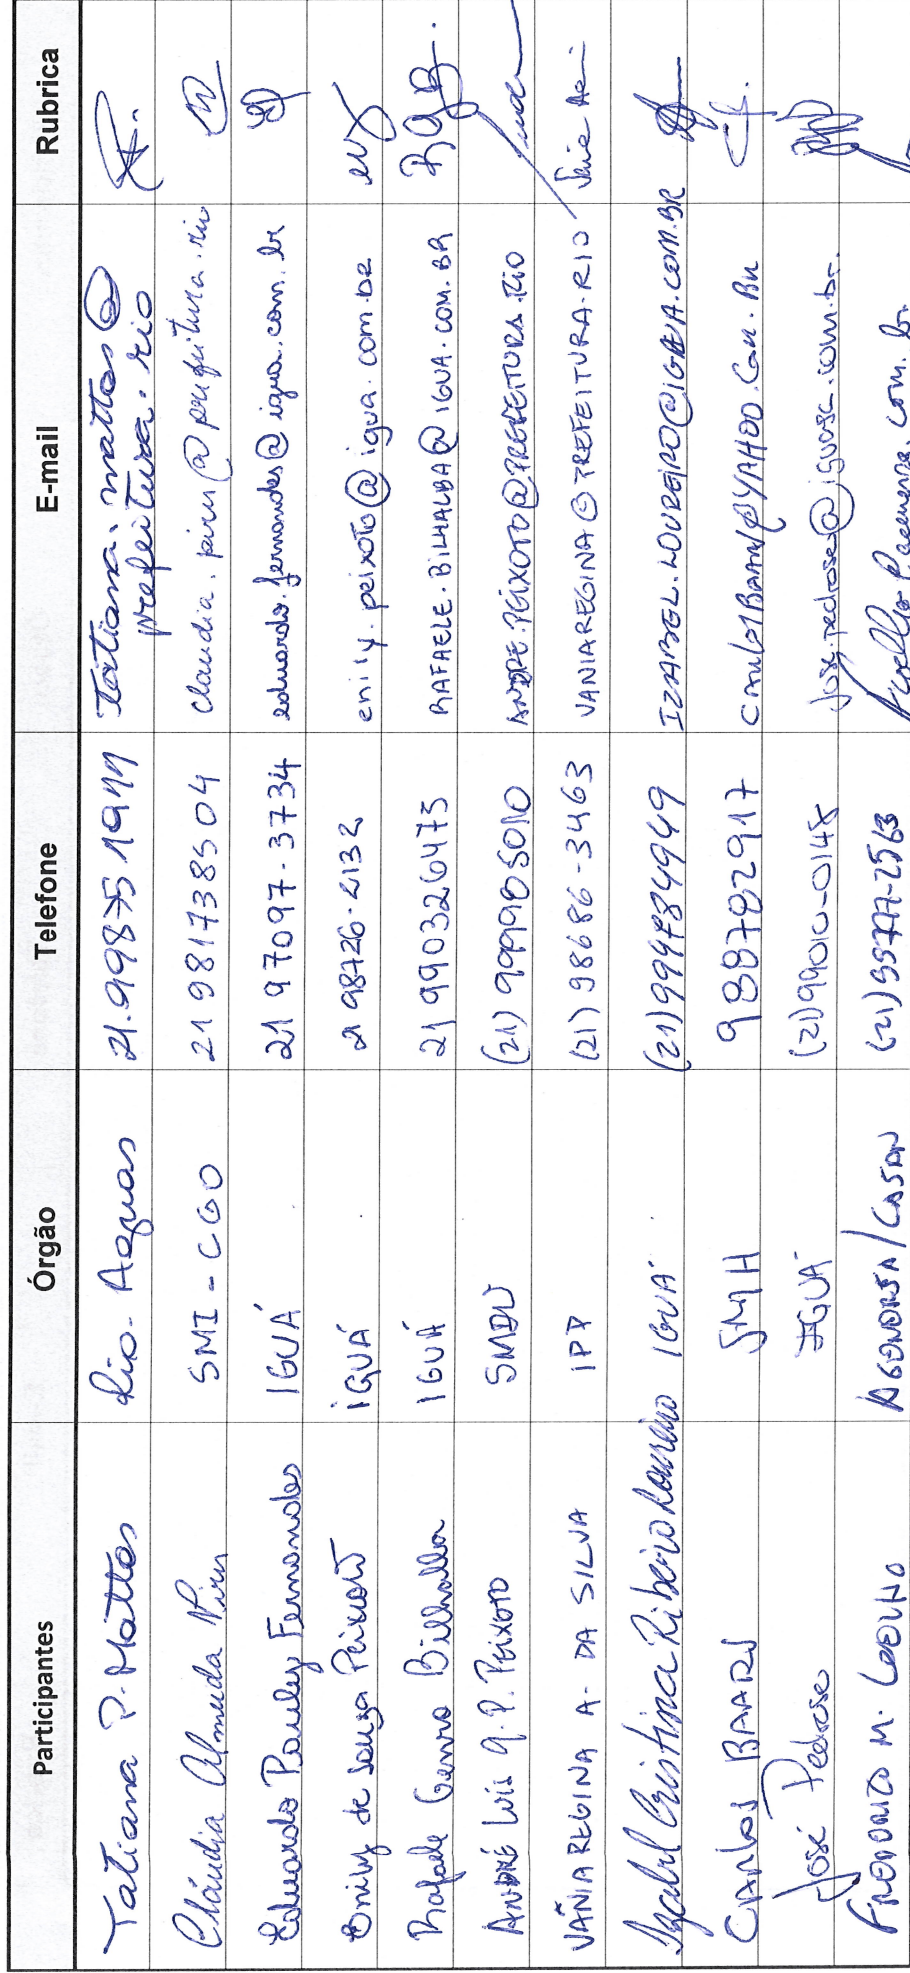 Participantes Órgão Telefone E-mail Rubrica
Tatiana P. Mattos Rio-Aguas 21.99875 1977 tatiana.mattos@
prefeitura.rio
Cláudia Almeida Pires SMI-CGO 21 981738504 claudia.pires@prefeitura.rio
Eduardo Pauley Fernandes IGUÁ 21 97097-3734 eduardo.fernandes@igua.com.br
Emily de Souza Peixoto iGUÁ 21 98726-2132 emily.peixoto@igua.com.br
Rafaele Genro Bilhalba IGUÁ 21 990326475 RAFAELE.BILHALBA@IGUA.COM.BR RGB.
ANDRÉ Luís Q.P. PEIXOTO SMDU (21) 999985010 ANDRE.PEIXOTO@PREFEITURA.RIO
VÂNIA REGINA A. DA SILVA IPP (21) 98686-3463 VANIAREGINA@PREFEITURA.RIO
Izabel Cristina Ribeiro Loureiro IGUÁ (21) 994784949 IZABEL.LOUREIRO@IGUA.COM.BR
CARLOS SMH 988782917
José Pedrosa IGUÁ (21) 99010-0148 jose.pedrosa@iguasa.com.br.
FREDERICO M. COELHO AGENERSA/CASAN (21) 99777-2563